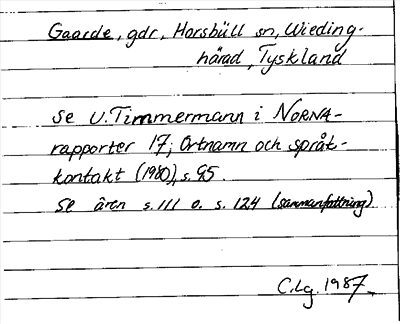 Gaarde, gdr, Horsbüll sn, Wieding-
härad, Tyskland
se U. Timmermann i NORNA-
rapporter 17; Ortnamn och språk-
kontakt (1980), s. 95.
se även s. 111 o. s. 124 (sammanfattning)
C. Lg. 1987.